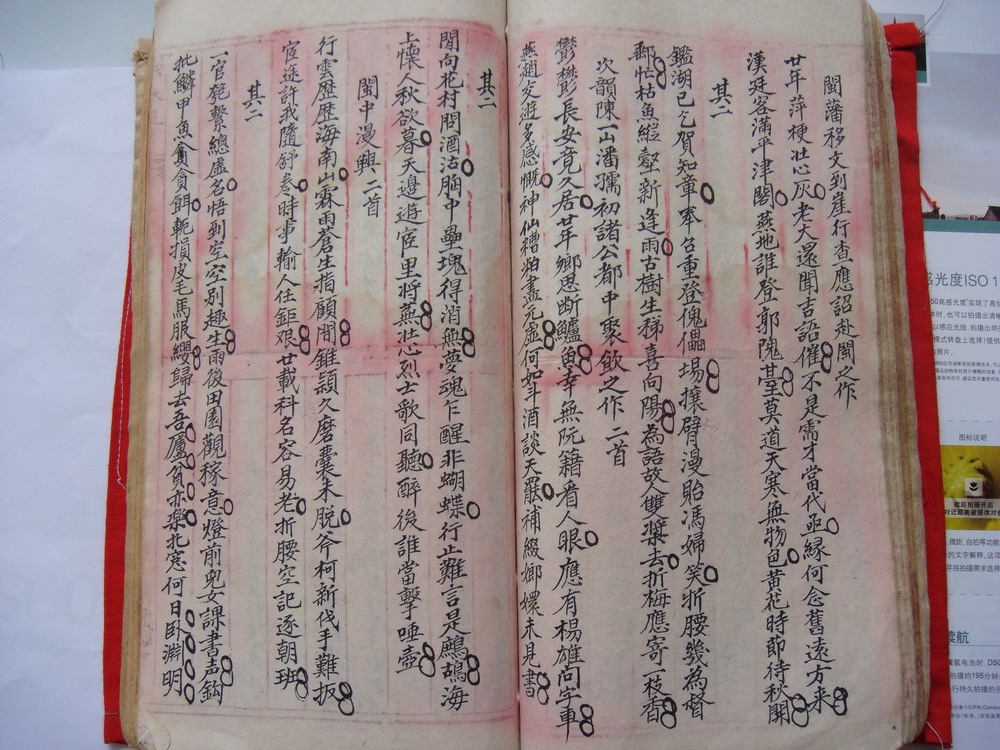 閩藩移文到崖行查應詔赴閩之作
廿年萍梗壯心灰老大還聞吉語催不是需才當代亟緣何念舊遠方來
漢廷客滿平津閣燕地誰登郭隗臺莫道天寒無物色黃花時節待秋開
其二
鑑湖已乞賀知章奉召重登傀儡場攘臂漫貽馮婦笑折腰幾為督
郵忙枯魚縱壑新逢雨古樹生稊喜向陽為語故人雙槳去折梅應寄一枝香
次韻陳一山潘孺初諸公都中聚飲之作二首
鬱鬱長安竟久居廿年鄉思斷鱸魚幸無阮籍看人眼應有楊雄問字車
燕趙交遊多感慨神仙糟粕盡元虛何如斗酒談天罷補綴嫏嬛未見書
其二
閒向花村問酒沽胸中壘塊得消無夢魂乍醒非蝴蝶行止難言是鷓鴣海
上懷人秋欲暮天邊遊宦里將蕪壯心烈士歌同聽醉後誰當擊唾壺
閩中漫興二首
行雲歷歷海南山霖雨蒼生指顧間錐穎久磨囊未脫斧柯新伐手難扳
宦途許我隨舒卷時事輸人任鉅艱廿載科名容易老折腰空記逐朝班
其二
一官匏繫總虛名悟到空空別趣生雨後田園觀稼意燈前兒女課書声鈎
批鱗甲魚貪餌軛損皮毛馬服纓歸去吾廬貧亦樂北窓何日臥淵明
感光度ISO 1
图标说明